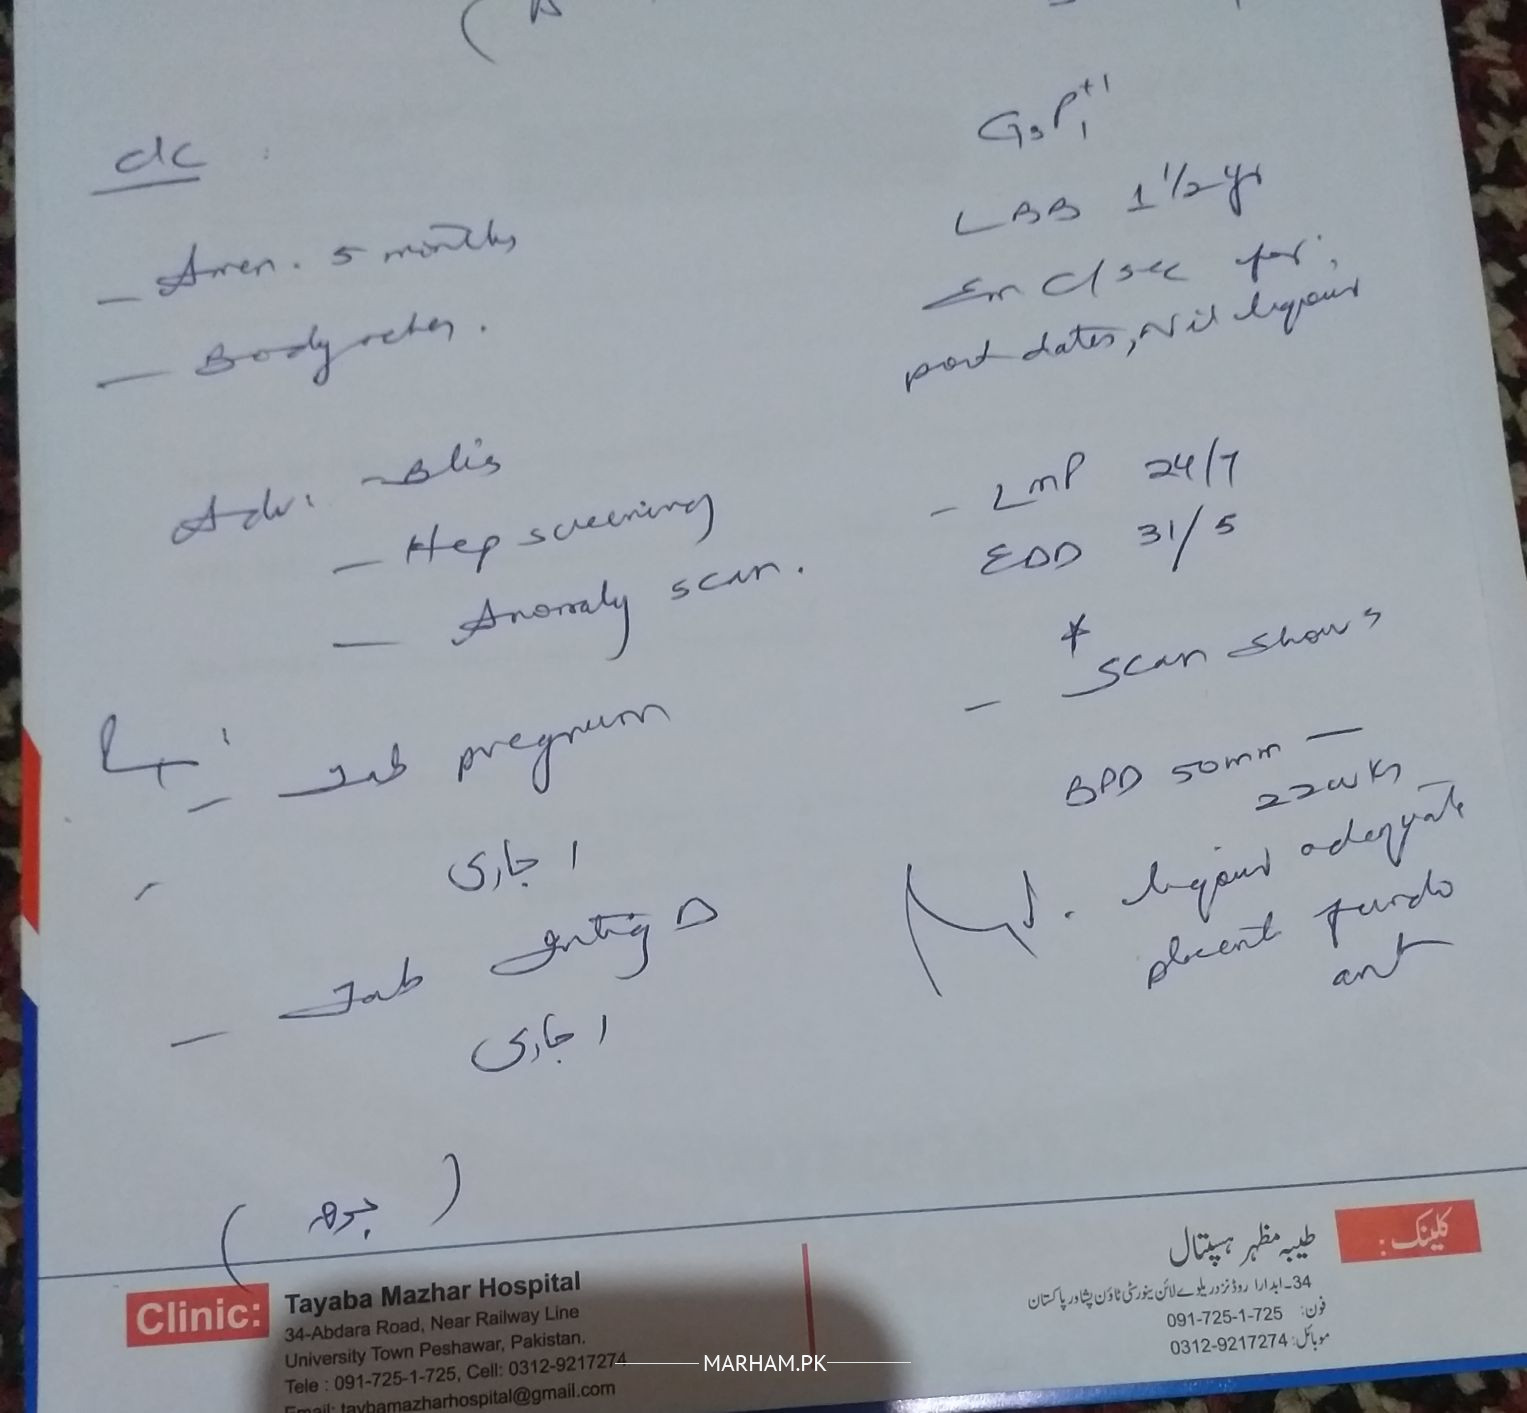 G3P1+1
c/c
LBB 1 1/2 yr
- Amen. 5 months
Em c/sec for:
- Bodyaches.
post dates, Nil liquour
Adv: - Blis
- LMP 24/7
- Hep screening
EDD 31/5
- Anomaly scan.
* - Scan shows
- Tab pregnum
BPD 50mm -
22wks
۱ جاری
liquour adequate
placent fundo
ant
- Tab D
۱ جاری
Clinic:
Tayaba Mazhar Hospital
34-Abdara Road, Near Railway Line
University Town Peshawar, Pakistan.
Tele : 091-725-1-725, Cell: 0312-9217274
Email: taybamazharhospital@gmail.com
کلینک :
طیبہ مظہر ہسپتال
34۔ابدارا روڈ نزد ریلوے لائن یونیورسٹی ٹاؤن پشاور پاکستان
فون: 091-725-1-725
موبائل: 0312-9217274
MARHAM.PK